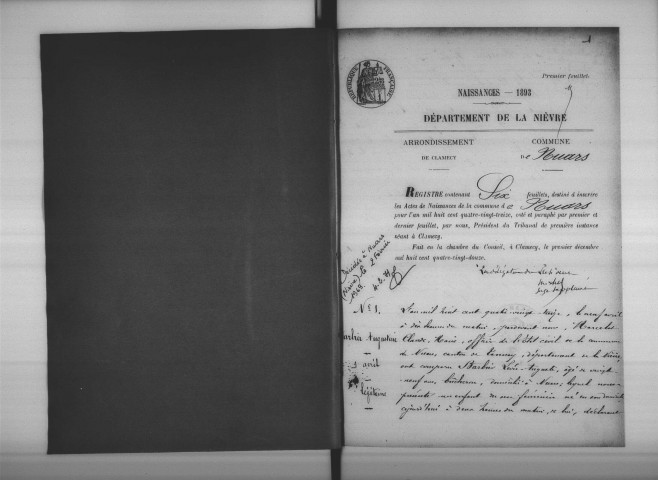 Premier feuillet.
RÉPUBLIQUE FRANÇAISE
NAISSANCES — 1893
DÉPARTEMENT DE LA NIÈVRE
ARRONDISSEMENT
DE CLAMECY
COMMUNE
De Nuars
REGISTRE contenant Six feuillets, destiné à inscrire
les Actes de Naissances de la commune de Nuars
pour l'an mil huit cent quatre-vingt-treize, coté et paraphé par premier et
dernier feuillet, par nous, Président du Tribunal de première instance
séant à Clamecy.
Fait en la chambre du Conseil, à Clamecy, le premier décembre
mil huit cent quatre-vingt-douze.
Décédée à Nuars
(Nièvre) le 2 février
1968
juge suppléant
N° 1.
Barbier Augustine
avril
légitime
L'an mil huit cent quatre vingt treize, le neuf avril
à dix heures du matin, pardevant nous,
Claude Marie, officier de l'état civil de la commune
de Nuars, canton de Tannay, département de la Nièvre,
ont comparu Barbier Louis Auguste, âgé de vingt
neuf ans, bûcheron, domicilié à Nuars, lequel nous
présente un enfant du sexe féminin né en son domicile
aujourd'hui à deux heures du matin, de lui, déclarant